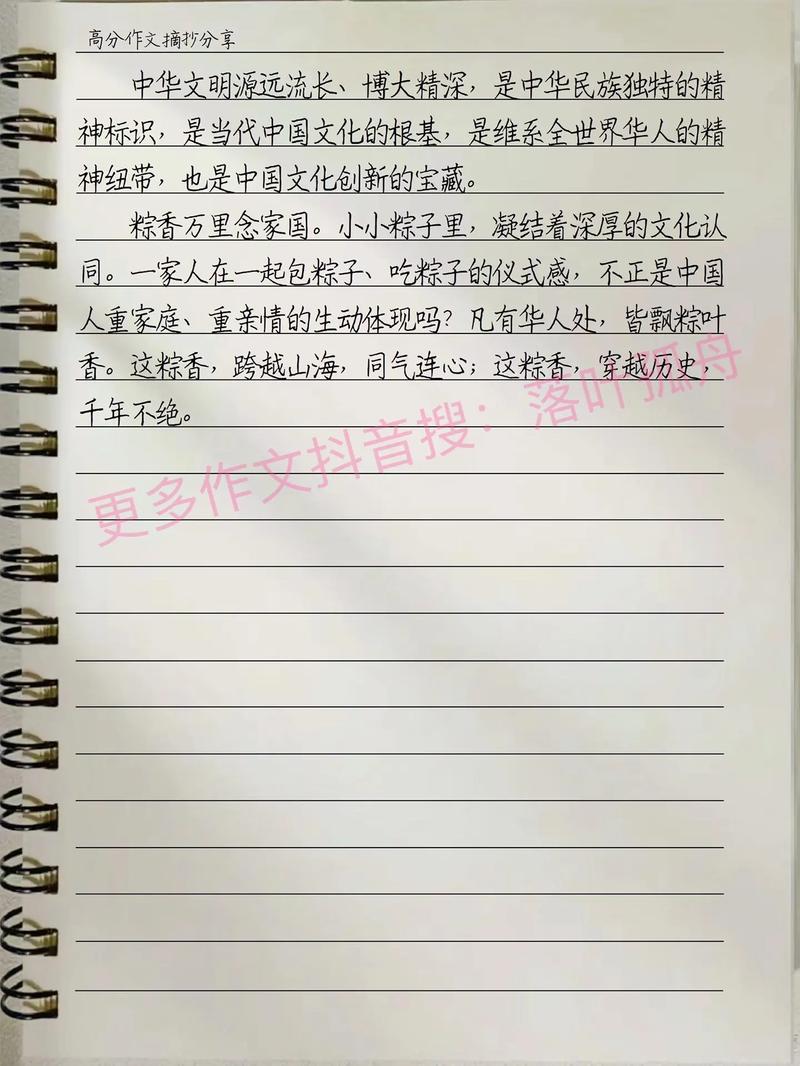 高分作文摘抄分享
中华文明源远流长、博大精深，是中华民族独特的精
神标识，是当代中国文化的根基，是维系全世界华人的精
神纽带，也是中国文化创新的宝藏。
粽香万里念家国。小小粽子里，凝结着深厚的文化认
同。一家人在一起包粽子、吃粽子的仪式感，不正是中国
人重家庭、重亲情的生动体现吗？凡有华人处，皆飘粽叶
香。这粽香，跨越山海，同气连心；这粽香，穿越历史，
千年不绝。
更多作文抖音搜：落叶孤舟